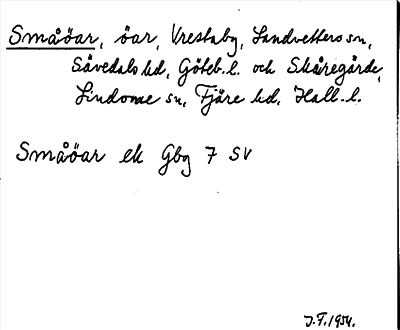 Småöar, öar, Vrestaby, Landvetters sn,
Sävedals hd, Göteb. l. och Skåregärde,
Lindome sn, Fjäre hd, Hall. l.
Småöar ek Gbg 7 SV
J.F. 1934.